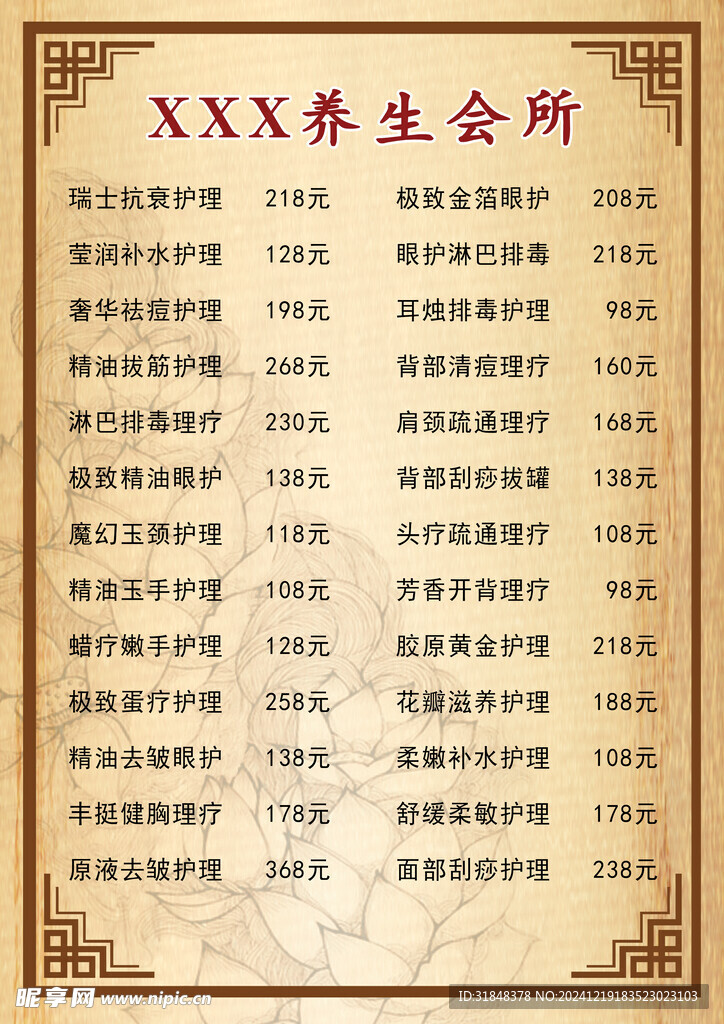 XXX养生会所
瑞士抗衰护理 218元 极致金箔眼护 208元
莹润补水护理 128元 眼护淋巴排毒 218元
奢华祛痘护理 198元 耳烛排毒护理 98元
精油拔筋护理 268元 背部清痘理疗 160元
淋巴排毒理疗 230元 肩颈疏通理疗 168元
极致精油眼护 138元 背部刮痧拔罐 138元
魔幻玉颈护理 118元 头疗疏通理疗 108元
精油玉手护理 108元 芳香开背理疗 98元
蜡疗嫩手护理 128元 胶原黄金护理 218元
极致蛋疗护理 258元 花瓣滋养护理 188元
精油去皱眼护 138元 柔嫩补水护理 108元
丰挺健胸理疗 178元 舒缓柔敏护理 178元
原液去皱护理 368元 面部刮痧护理 238元
昵享网 www.nipic.cn ID:31848378 NO:20241219183523023103